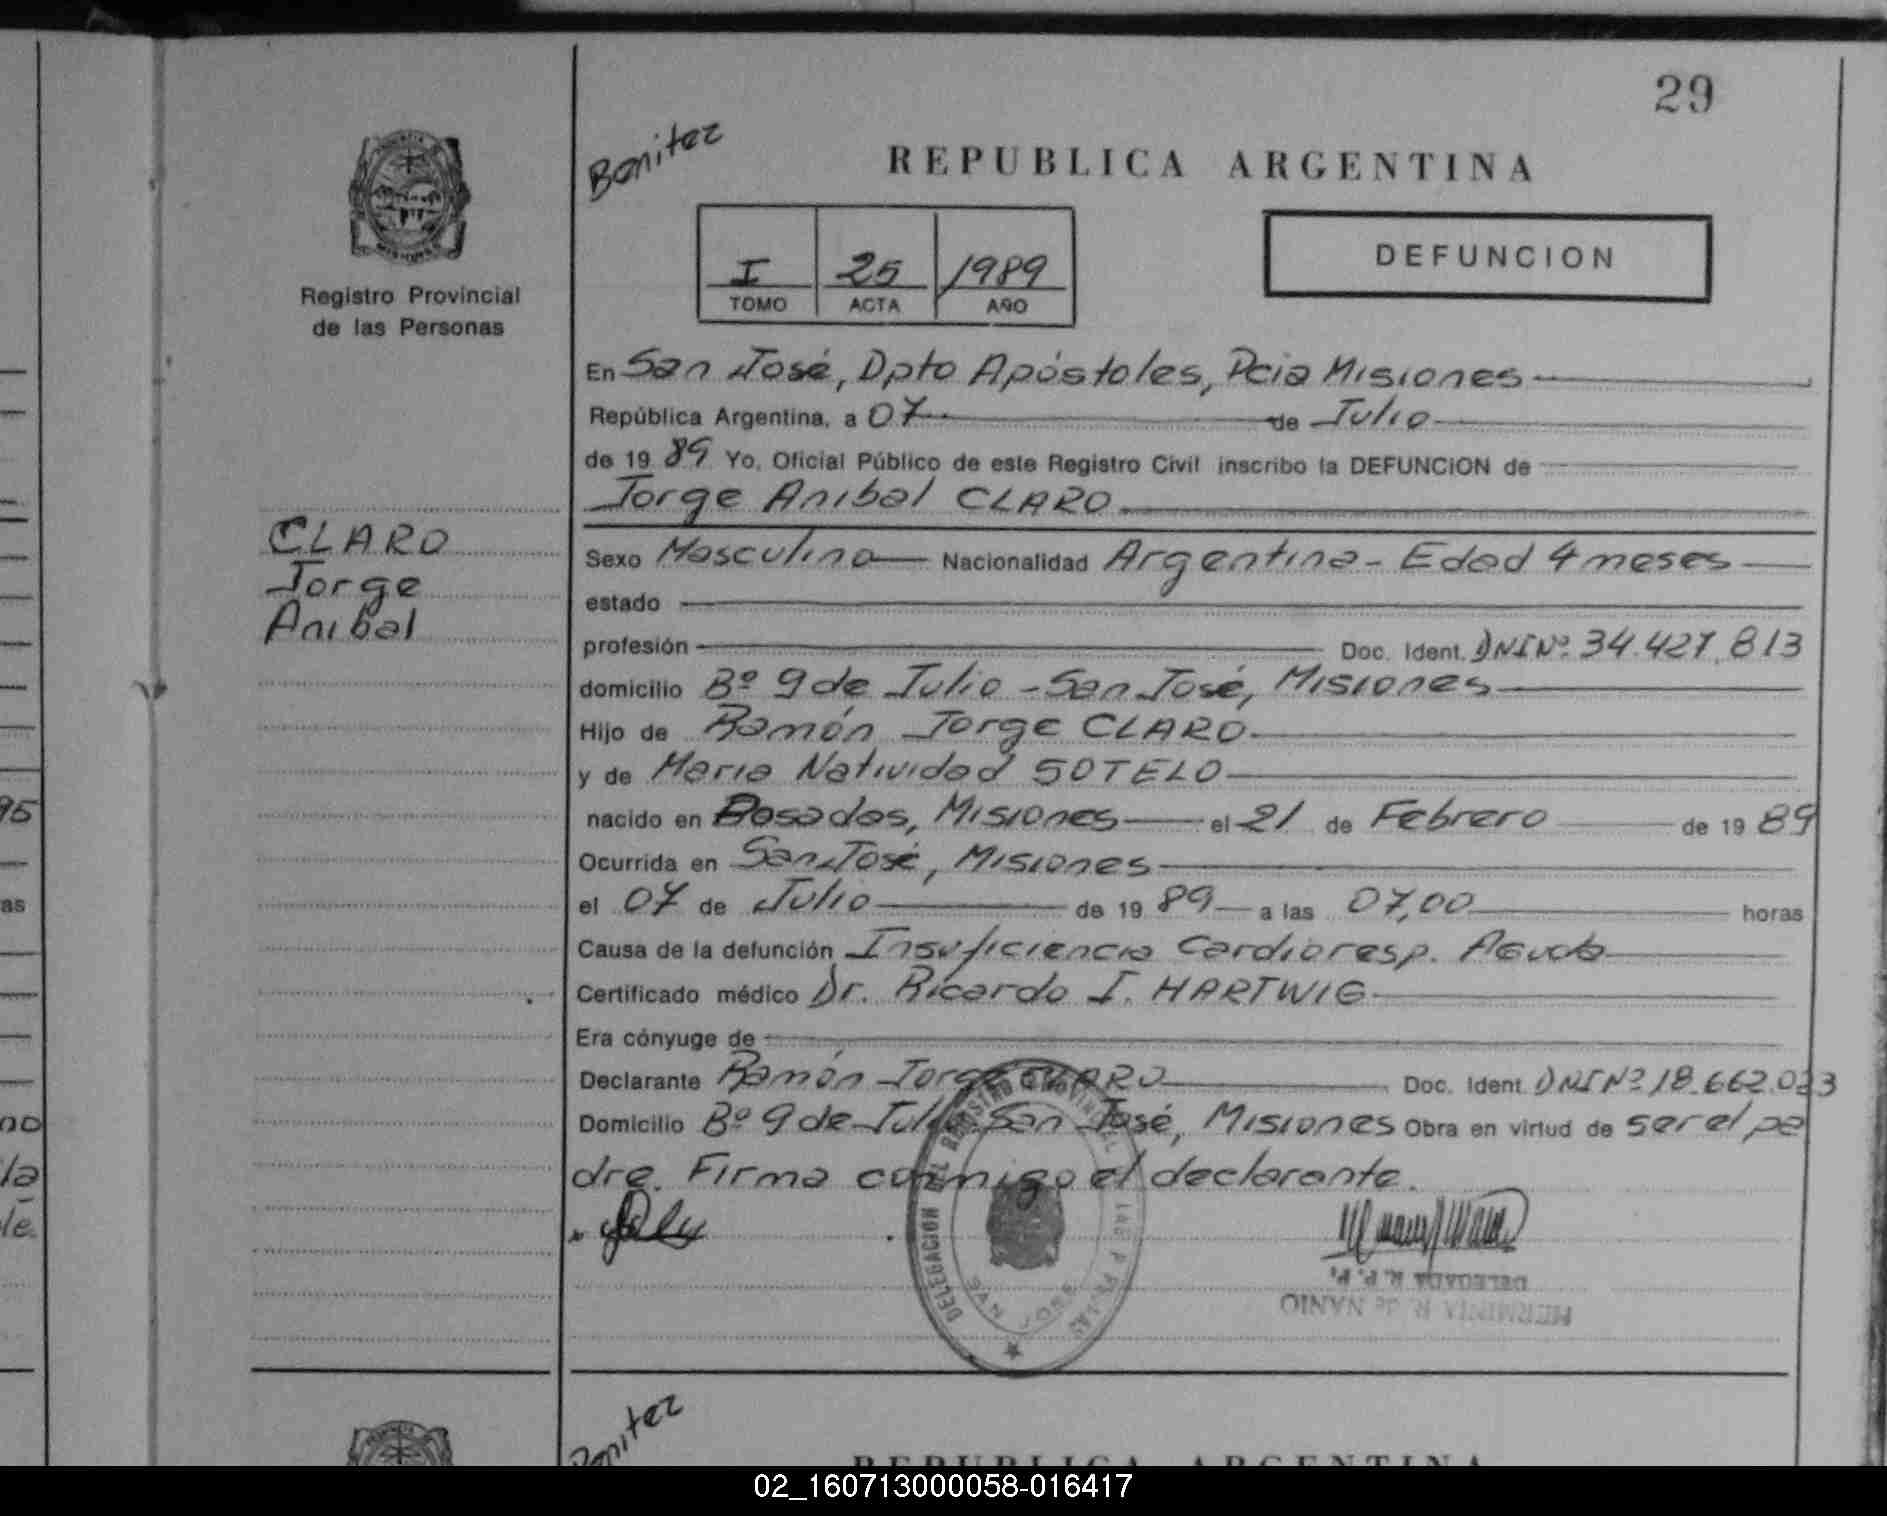 29
Benitez
REPUBLICA ARGENTINA
I 25 1989
TOMO ACTA AÑO
DEFUNCION
Registro Provincial
de las Personas
En San José, Dpto Apóstoles, Pcia Misiones
República Argentina, a 07 de Julio
de 19 89 Yo, Oficial Público de este Registro Civil inscribo la DEFUNCION de
Jorge Anibal CLARO
CLARO
Jorge
Anibal
Sexo Masculino Nacionalidad Argentina - Edad 4 meses
estado
profesión Doc. Ident. DNI Nº 34.427.813
domicilio Bº 9 de Julio - San José, Misiones
Hijo de Ramón Jorge CLARO
y de Maria Natividad SOTELO
nacido en Posadas, Misiones el 21 de Febrero de 19 89
Ocurrida en San José, Misiones
el 07 de Julio de 19 89 a las 07,00 horas
Causa de la defunción Insuficiencia Cardioresp. Aguda
Certificado médico Dr. Ricardo I. HARTWIG
Era cónyuge de
Declarante Ramón Jorge CLARO Doc. Ident. DNI Nº 18.662.023
Domicilio Bº 9 de Julio San José, Misiones Obra en virtud de ser el pa
dre. Firma conmigo el declarante.
DELEGACION DEL REGISTRO PROVINCIAL DE LAS PERSONAS
SAN JOSE
DELEGADA R. P. P.
HERMINIA R. de NANIO
95
as
no
la
le.
Benitez
REPUBLICA ARGENTINA
02_160713000058-016417